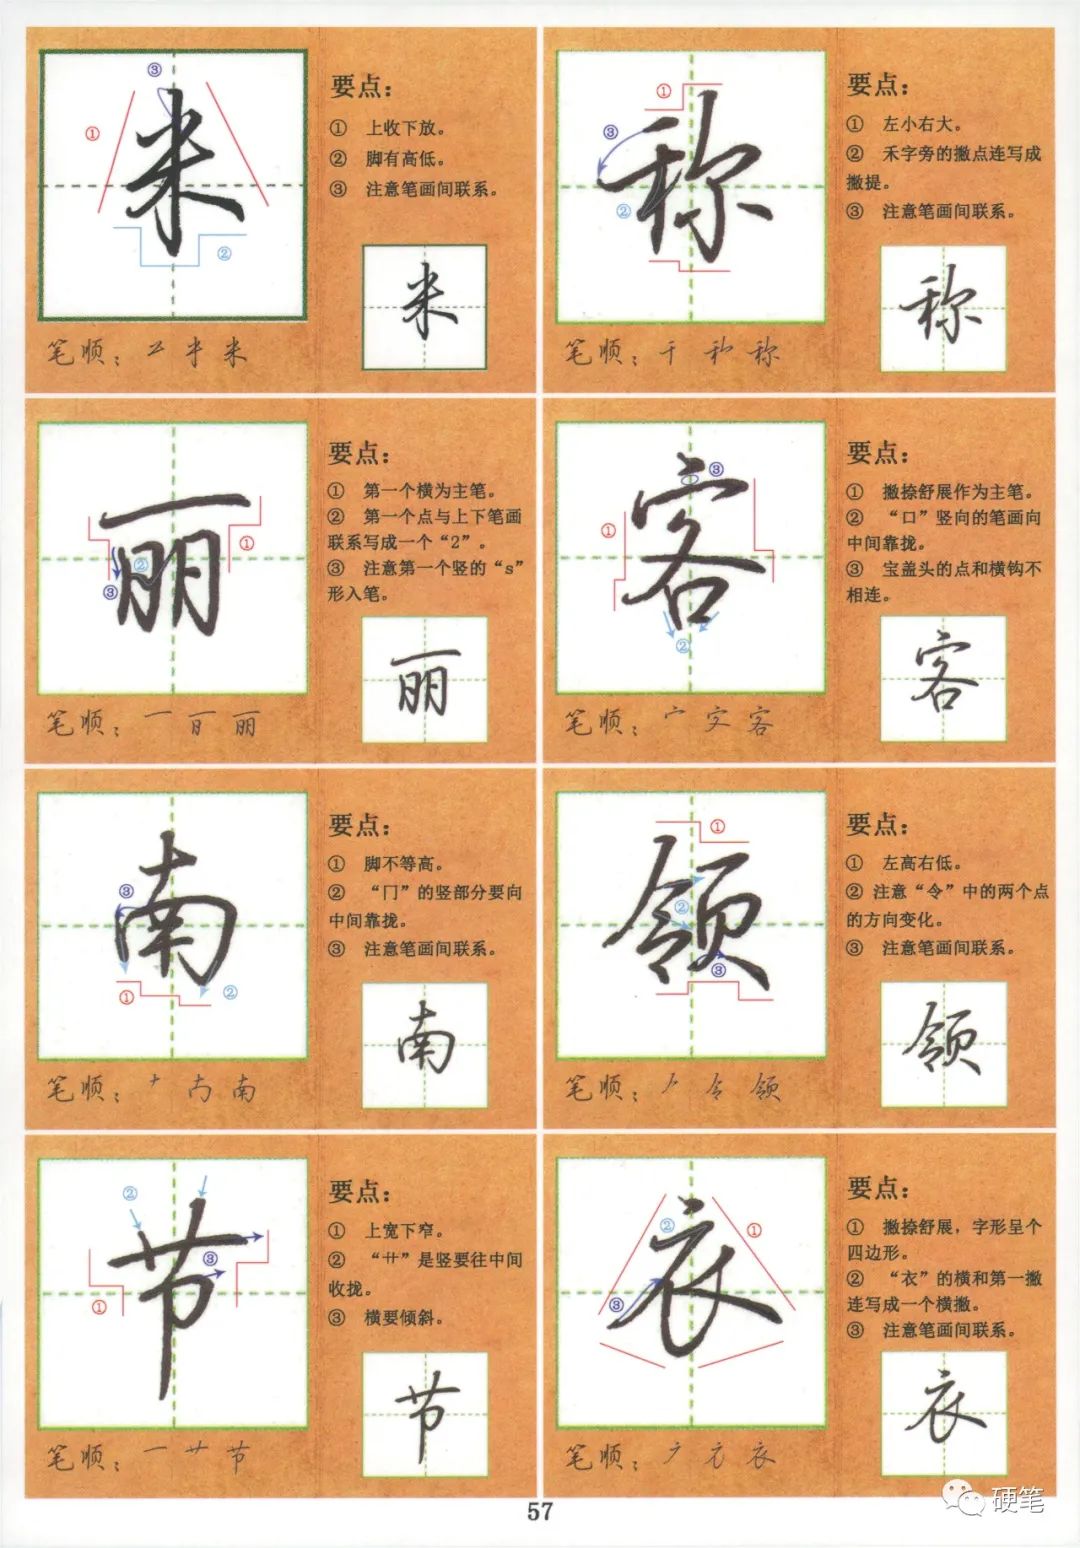 米
要点：
① 上收下放。
② 脚有高低。
③ 注意笔画间联系。
米
笔顺： 米
称
要点：
① 左小右大。
② 禾字旁的撇点连写成
撇提。
③ 注意笔画间联系。
称
笔顺：千 称
丽
要点：
① 第一个横为主笔。
② 第一个点与上下笔画
联系写成一个“2”。
③ 注意第一个竖的“s”
形入笔。
丽
笔顺：一 丽
客
要点：
① 撇捺舒展作为主笔。
② “口”竖向的笔画向
中间靠拢。
③ 宝盖头的点和横钩不
相连。
客
笔顺：宀 客
南
要点：
① 脚不等高。
② “冂”的竖部分要向
中间靠拢。
③ 注意笔画间联系。
南
笔顺：十 南
领
要点：
① 左高右低。
② 注意“令”中的两个点
的方向变化。
③ 注意笔画间联系。
领
笔顺： 令 领
节
要点：
① 上宽下窄。
② “艹”是竖要往中间
收拢。
③ 横要倾斜。
节
笔顺：一 艹 节
衣
要点：
① 撇捺舒展，字形呈个
四边形。
② “衣”的横和第一撇
连写成一个横撇。
③ 注意笔画间联系。
衣
笔顺： 衣
57
硬笔